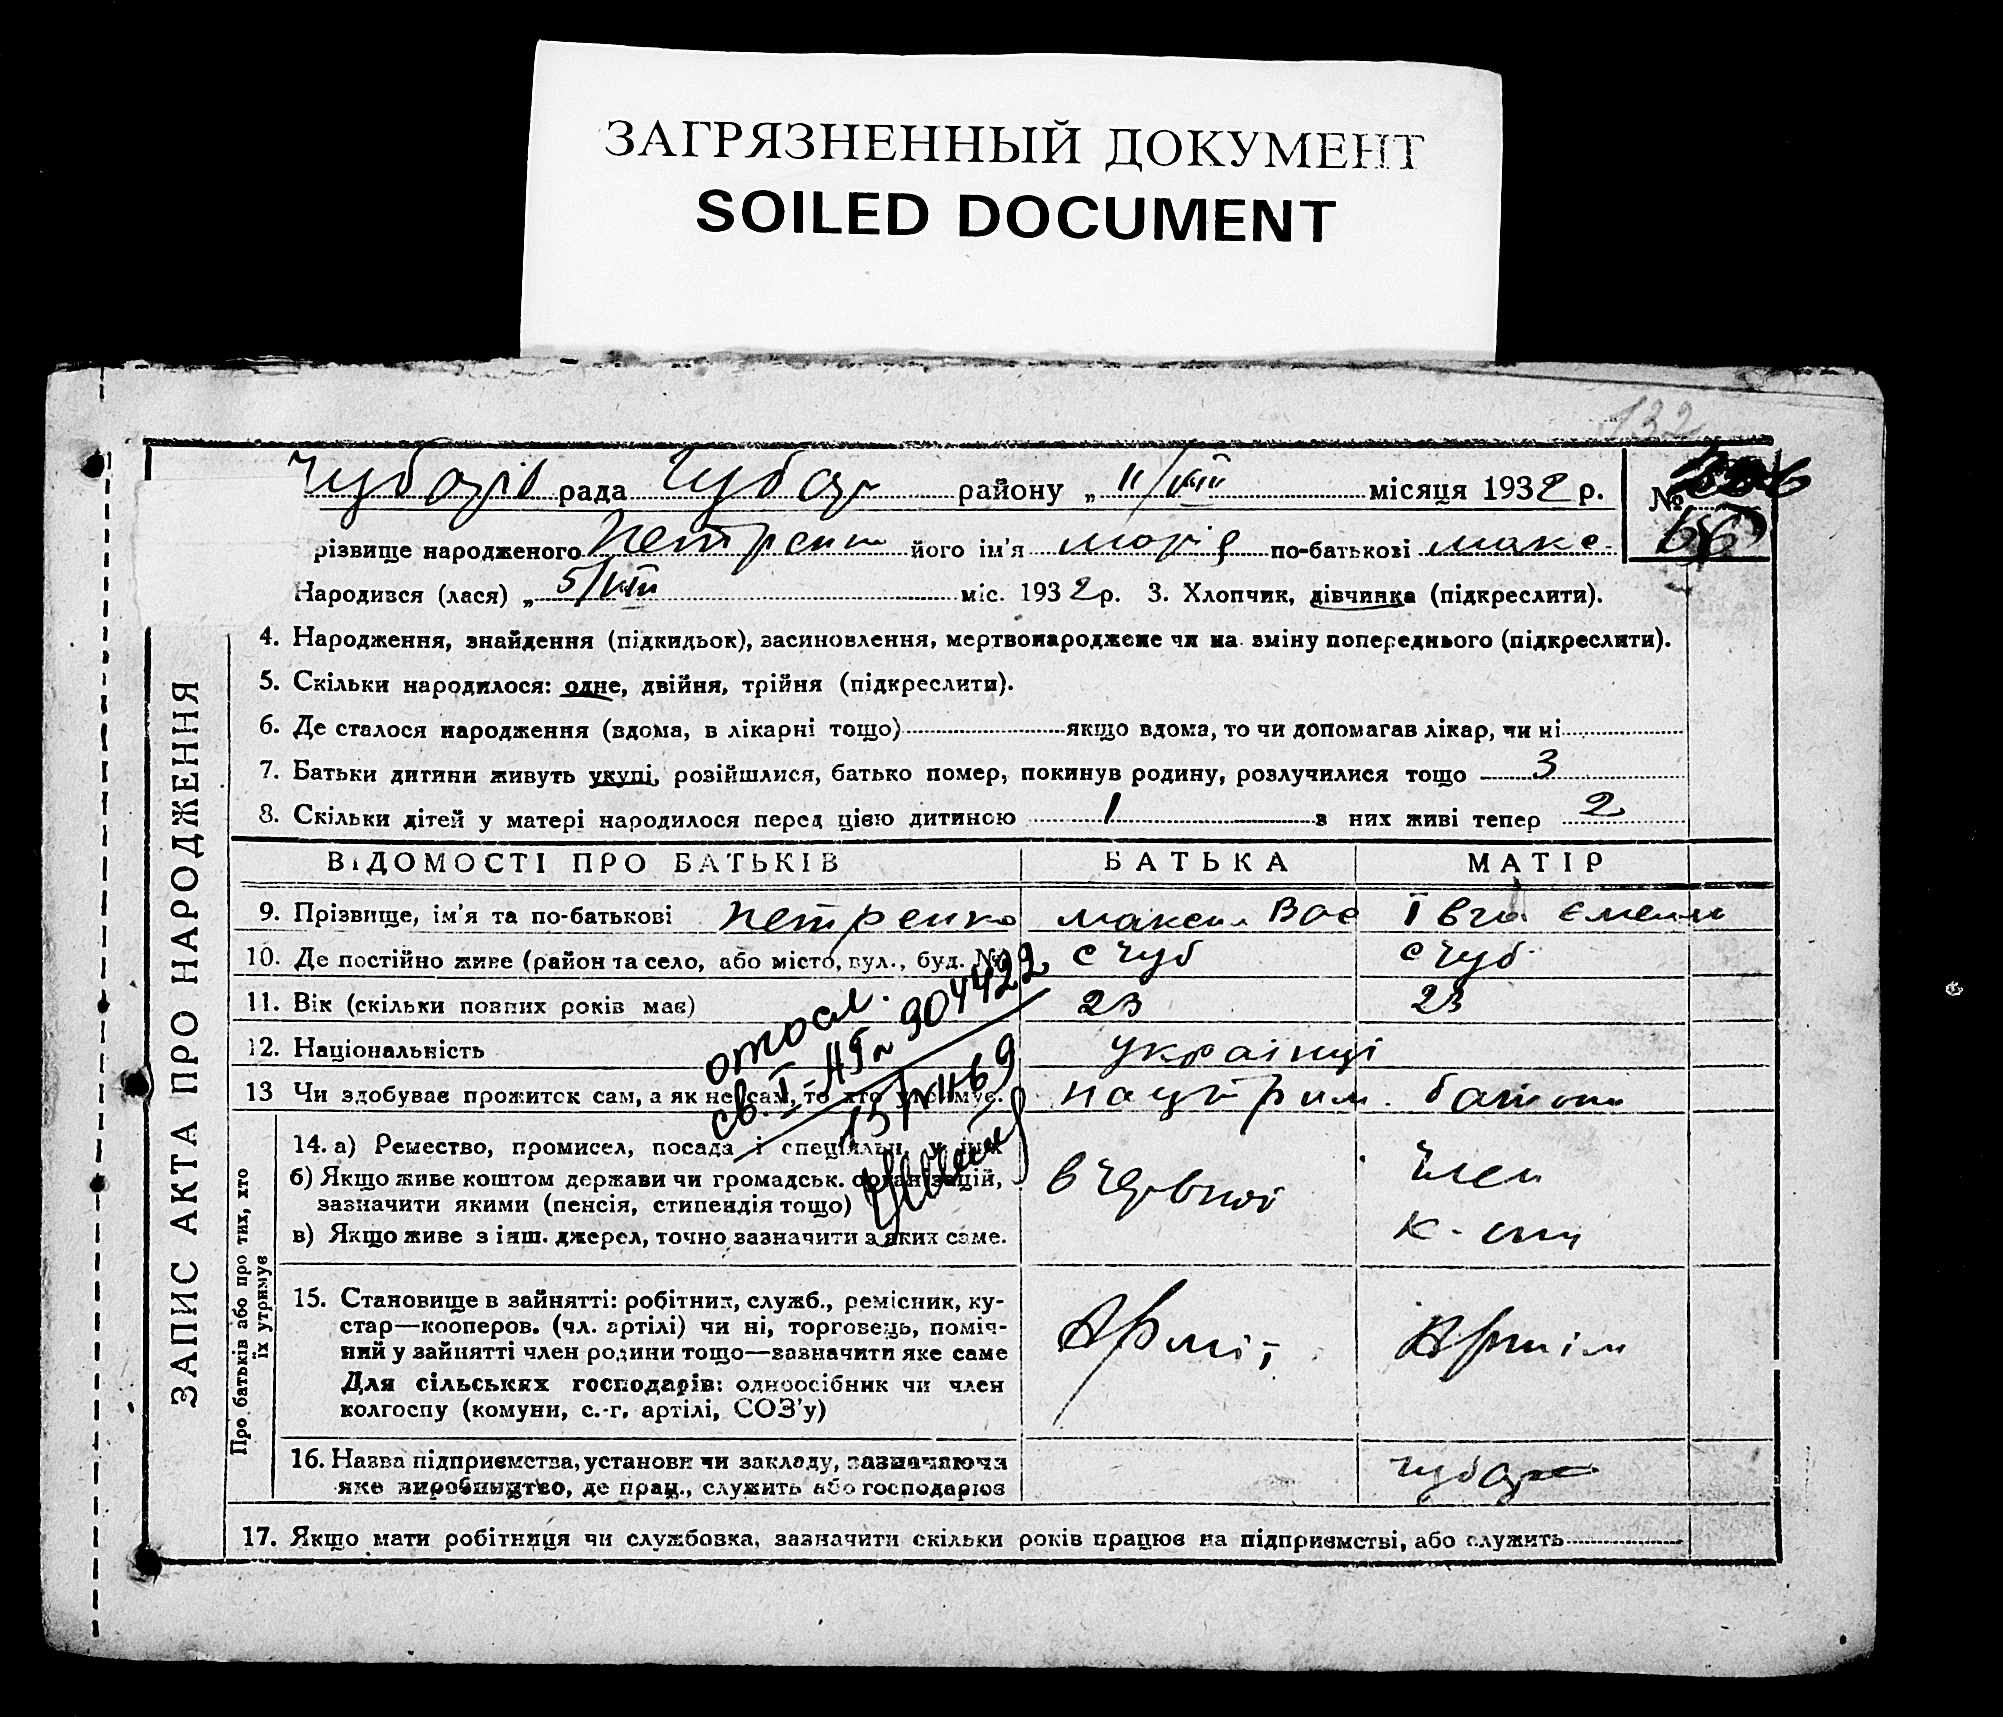 ЗАГРЯЗНЕННЫЙ ДОКУМЕНТ
SOILED DOCUMENT
132
рада Чубар району „ 11/VIII місяця 1932 р. №
66
різвище народженого Петренко його ім'я Марія по-батькові Макс.
Народився (лася) „ 5/VIII міс. 1932 р. 3. Хлопчик, дівчинка (підкреслити).
4. Народження, знайдення (підкидьок), засиновлення, мертвонароджене чи на зміну попереднього (підкреслити).
5. Скільки народилося: одне, двійня, трійня (підкреслити).
6. Де сталося народження (вдома, в лікарні тощо) якщо вдома, то чи допомагав лікар, чи ні
7. Батьки дитини живуть укупі, розійшлися, батько помер, покинув родину, розлучилися тощо 3
8. Скільки дітей у матері народилося перед цією дитиною 1 з них живі тепер 2
ВІДОМОСТІ ПРО БАТЬКІВ БАТЬКА МАТІР
9. Прізвище, ім'я та по-батькові Петренко Максим Вас Івга Емель
10. Де постійно живе (район та село, або місто, вул., буд. № с Чуб с Чуб.
11. Вік (скільки повних років має) 23 23
12. Національність українці
13 Чи здобуває прожиток сам, а як не сам, то хто утримує.
14. а) Ремество, промисел, посада і спеціяльн. у них
б) Якщо живе коштом держави чи громадськ. організацій,
зазначити якими (пенсія, стипендія тощо)
в) Якщо живе з інш. джерел, точно зазначити з яких саме.
в Червоній
член
к-спи
15. Становище в зайнятті: робітник, служб., ремісник, ку-
стар—кооперов. (чл. артілі) чи ні, торговець, поміч-
ний у зайнятті член родини тощо—зазначити яке саме
Для сільських господарів: одноосібник чи член
колгоспу (комуни, с.-г. артілі, СОЗ'у)
Армії
16. Назва підприємства, установи чи закладу, зазначаючи
яке виробництво, де прац., служить або господарює
17. Якщо мати робітниця чи службовка, зазначити скільки років працює на підприємстві, або служить
ЗАПИС АКТА ПРО НАРОДЖЕННЯ
Про батьків або про тих, хто
їх утримує
св. I-НГ № 304422
15/VII-69